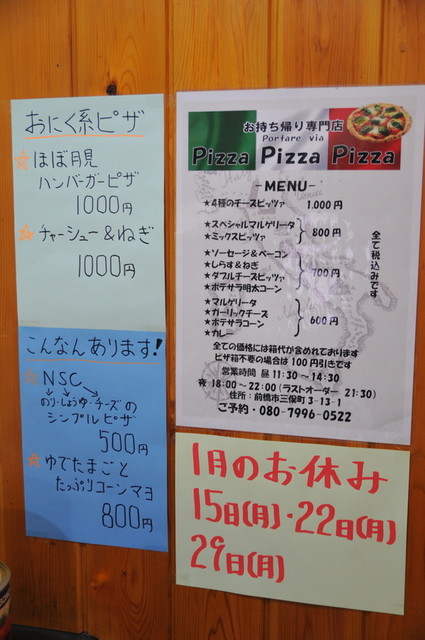 おにく系ピザ
☆ほぼ月見
ハンバーガーピザ
1000円
☆チャーシュー&ねぎ
1000円
こんなんあります!
☆NSC
のり・しょうゆ・チーズの
シンプルピザ
500円
☆ゆでたまごと
たっぷりコーンマヨ
800円
お持ち帰り専門店
Portare via
Pizza Pizza Pizza
-MENU-
★4種のチーズピッツァ 1.000円
★スペシャルマルゲリータ
★ミックスピッツァ
800円
★ソーセージ&ベーコン
★しらす&ねぎ
★ダブルチーズピッツァ
★ポテサラ明太コーン
700円
★マルゲリータ
★ガーリックチーズ
★ポテサラコーン
★カレー
600円
全て税込みです
全ての価格には箱代が含めれております
ピザ箱不要の場合は100円引きです
営業時間 昼11:30~14:30
夜18:00~22:00(ラストオーダー 21:30)
住所:前橋市三俣町3-13-1
ご予約・080-7996-0522
1月のお休み
15日(月)・22日(月)
29日(月)